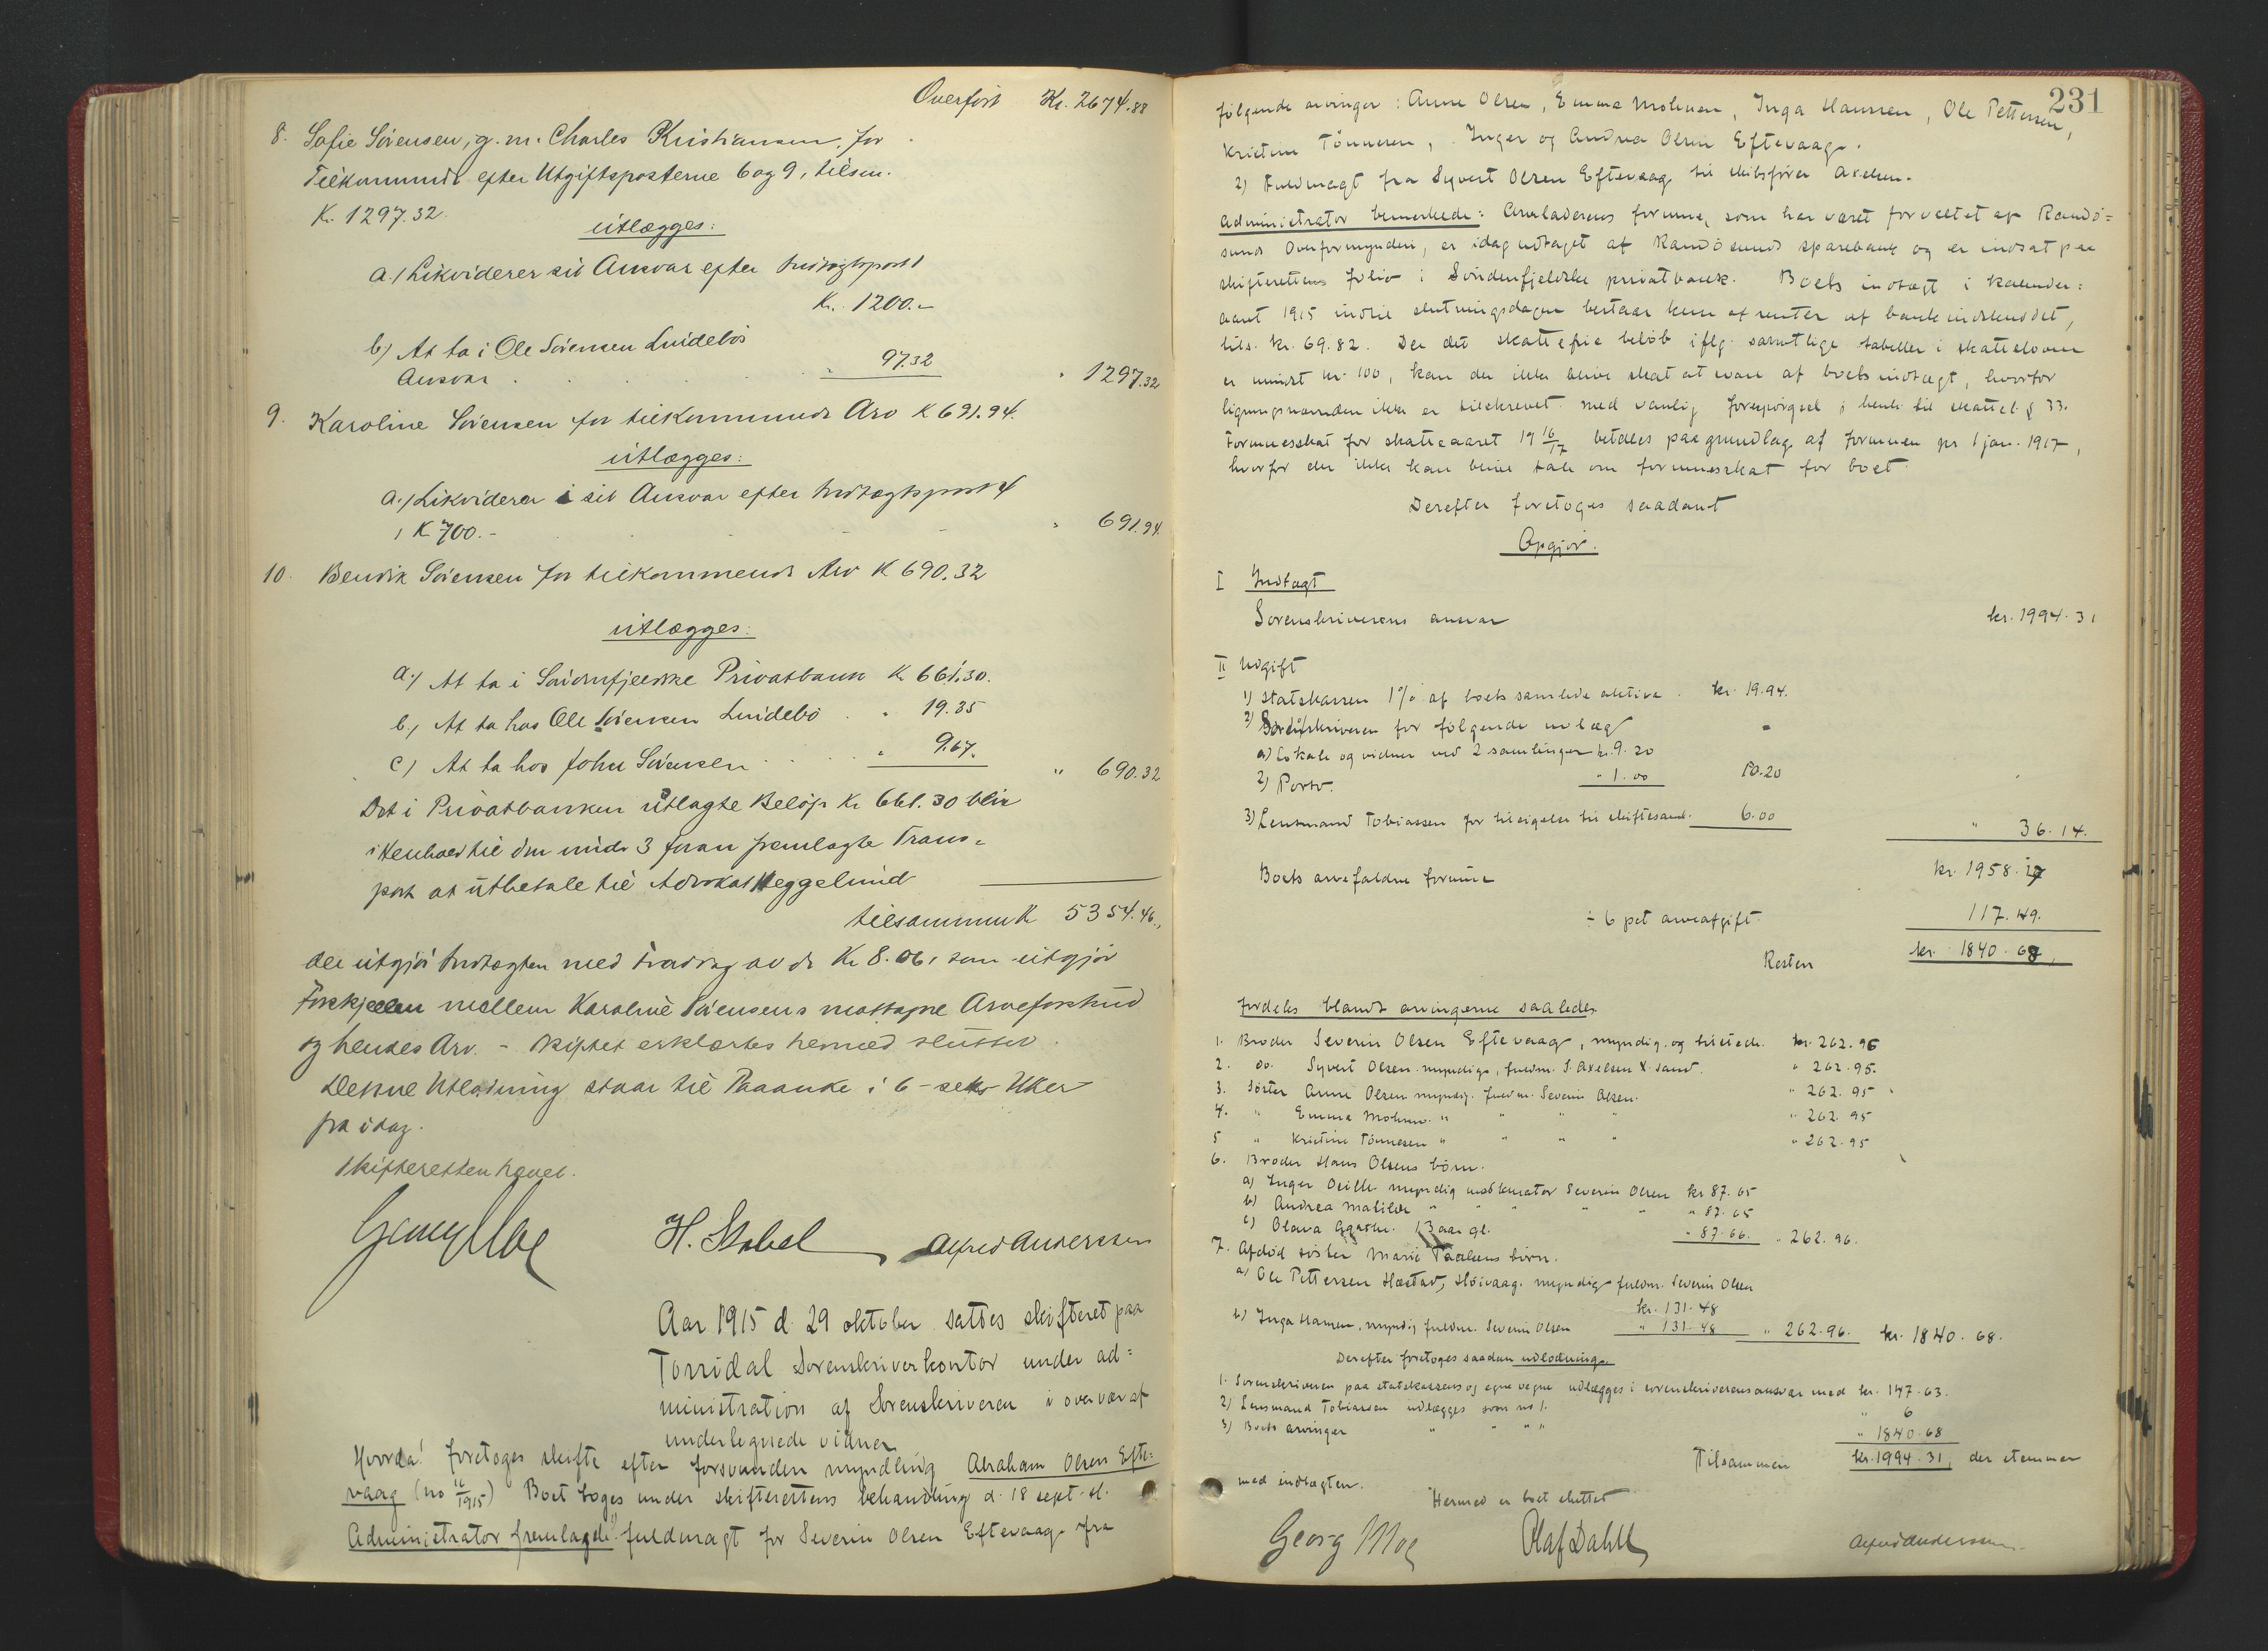 Overført Kr. 2674.88
8. Sofie Sörensen, g. m. Charles Kristiansen, for
Tilkommende efter Utgiftsposterne 6 og 9, tilsm.
Kr. 1297.32.
utlægges:
a./ Likviderer sit Ansvar efter Indtægtspost 1
Kr. 1200.-
b) At ta i Ole Sörensen Lindebös
Ansvar . . . . . " 97.32 " 1297.32
9. Karoline Sörensen for tilkommende Arv K 691.94.
utlægges:
a./ Likviderer i sit Ansvar efter Indtægtspost 4
, K 700.- " 691.94
10. Bendik Sörensen for tilkommende Arv K 690.32
utlægges:
a./ At ta i Söndenfjeldske Privatbank K 661.30.
b./ At ta hos Ole Sörensen Lindebö . " 19.35
c) At ta hos John Sörensen . . . " 9.67. " 690.32
Det i Privatbanken utlagte Beløp Kr 661.30 blir
i Henhold til den under 3 foran fremlagte Trans-
port at utbetale til Advokat Heggelund
tilsammen K 5354.46.,
der utgjör Indtægten med Fradrag av de Kr 8.06, som utgjör
Forskjellen mellem Karoline Sörensens mottagne Arveforskud
og hendes Arv. - Skiftet erklærtes hermed sluttet.
Denne Utlodning staar til Paaanke i 6 - seks Uker
fra idag.
Skifteretten hævet.
Georg Moe H. Stabel Alfred Anderssen
Aar 1915 d. 29 oktober sattes skifteret paa
Torridal Sorenskriverkontor under ad=
ministration af Sorenskriveren i overvær af
underlegnede vidner
Hvorda! foretoges skifte efter forsvunden myndling Abraham Olsen Efte=
vaag (no 16/1915) Boet toges under skifterettens behandling d. 18 sept. sl.
Administrator fremlagde: fuldmagt for Severin Olsen Eftevaag fra
231
følgende arvinger: Anne Olsen, Emma Molunen, Inga Hansen, Ole Pettersen,
Kristine Tönnesen, Inger og Andrea Olsen Eftevaag.
2) Fuldmagt fra Syvert Olsen Eftevaag til skibsfører Axelsen.
Administrator bemerkede: Arveladerens formue, som har været forvaltet af Randö=
sunds Overformynderi, er idag udtaget af Randösunds sparebank og er indsat paa
skifterettens folio i Söndenfjeldske privatbank. Boets indtægt i kalender=
aaret 1915 indtil slutningsdagen bestaar kun af renter af bankindskuddet,
tils. kr. 69.82. Der det skattefrie beløb iflg. samtlige tabeller i skatteloven
er mindst kr. 100, kan der ikke blive skat at svare af boets indtægt, hvorfor
ligningsnævnden ikke er tilskrevet med vanlig forespørgsel i henh. til skattel. § 33.
Formuesskat for skatteaaret 19 16/17 betales paa grundlag af formuen pr 1 jan. 1917,
hvorfor der ikke kan blive tale om formuesskat for boet.
Derefter foretoges saadant
Opgjør.
I Indtægt
Sorenskriverens ansvar kr. 1994.31
II Udgift
1) Statskassen 1% af boets samlede aktiva . kr. 19.94.
2) Sorenskriveren for følgende udlæg
a) Lokale og vidner ved 2 samlinger kr. 9.20
2) Porto. " 1.00 10.20
3) Lensmand Tobiassen for tilsigelse til skiftesaml. 6.00 " 36.14.
Boets arvefaldne formue kr. 1958.17
÷ 6 pct arveafgift. 117.49.
Resten kr. 1840.68,
fordeles blandt arvingerne saaledes.
1. Broder Severin Olsen Eftevaag, myndig og tilstede. kr. 262.96
2. do. Syvert Olsen myndig, fuldm. S. Axelsen X sand. " 262.95.
3. Søster Anne Olsen myndig. fuldm. Severin Olsen. " 262.95
4. " Emma Molunen. " " " " " 262.95
5 " Kristine Tönnesen " " " " " 262.95
6. Broder Hans Olsens børn.
a) Inger Otille myndig med kurator Severin Olsen kr 87.65
b) Andrea Matilde " " " " " " 87.65
c) Olava Agathe. 13 aar gl. " 87.66. " 262.96.
7. Afdød søster Marie Paalsens børn.
a) Ole Pettersen Hæstad, Høivaag. myndig fuldm. Severin Olsen
kr. 131.48
b) Inga Hansen, myndig fuldm. Severin Olsen " 131.48 " 262.96. kr. 1840.68.
Derefter foretoges saadan udlodning.
1. Sorenskriveren paa statskassens og egne vegne udlægges i sorenskriverens ansvar med kr. 147.63.
2) Lensmand Tobiassen udlægges som no 1. " 6
3) Boets arvinger " " " " " 1840.68
Tilsammen kr. 1994.31, der stemmer
med indtægten.
Hermed er boet sluttet
Georg Moe Olaf Dahll Alfred Anderssen.